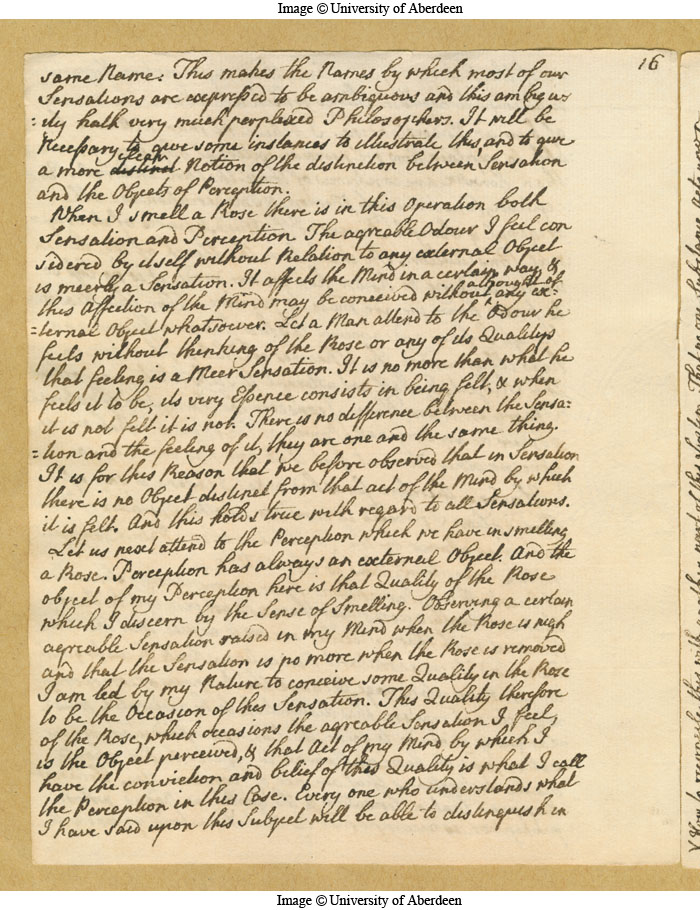 Image © University of Aberdeen
16
same Name: This makes the Names by which most of our
Sensations are expressed to be ambiguous and this ambigu
=ity hath very much perplexed Philosophers. It will be
Necessary to give some instances to illustrate this, and to give
clear
a more distinct Notion of the distinction between Sensation
and the Objects of Perception.
When I smell a Rose there is in this Operation both
Sensation and Perception The agreable Odour I feel con
sidered by itself without Relation to any external Object
is meerly a Sensation. It affects the Mind in a certain way, &
a thought of
this Affection of the Mind may be conceived without any ex=
=ternal Object whatsoever. Let a Man attend to the Odour he
feels without thinking of the Rose or any of its Qualitys
that feeling is a Meer Sensation. It is no more than what he
feels it to be, its very Essence consists in being felt, & when
it is not felt it is not. There is no difference between the Sensa=
=tion and the feeling of it, they are one and the same thing.
It is for this Reason that we before observed that in Sensation
there is no Object distinct from that act of the Mind by which
it is felt. And this holds true with regard to all Sensations.
Let us next attend to the Perception which we have in smelling
a Rose. Perception has always an external Object. And the
object of my Perception here is that Quality of the Rose
which I discern by the Sense of Smelling. Observing a certain
agreable Sensation raised in my Mind when the Rose is nigh
and that the Sensation is no more when the Rose is removed
I am led by my Nature to conceive some Quality in the Rose
to be the Occasion of this Sensation. This Quality therefore
of the Rose, which occasions the agreable Sensation I feel,
is the Object perceived, & that Act of my Mind by which I
have the conviction and belief of this Quality is what I call
the Perception in this Case. Every one who understands what
I have said upon this Subject will be able to distinguish in
Image © University of Aberdeen